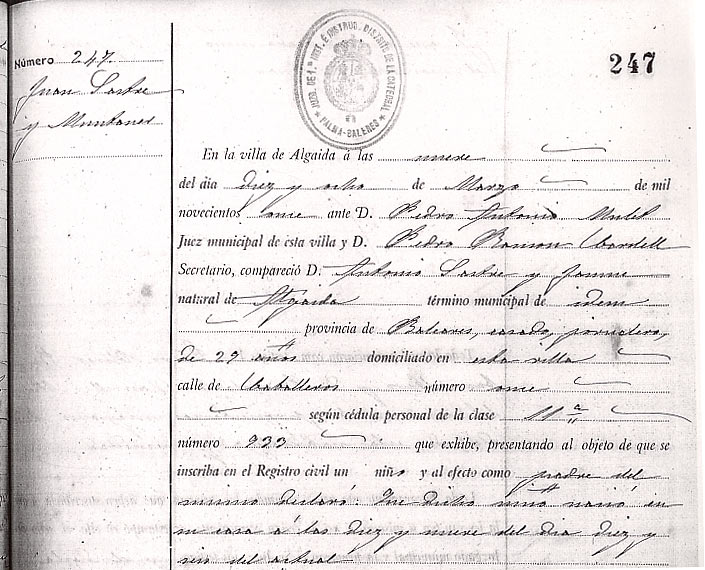 JUZG. DE 1.ª INST. É INSTRUC. DISTRITO DE LA CATEDRAL
PALMA-BALERES
247
Número 247.
Juan Sastre
y Muntaner
En la villa de Algaida á las nueve
del dia diez y ocho de Marzo de mil
novecientos once ante D. Pedro Antonio Mulet
Juez municipal de esta villa y D. Pedro Ramon Cardell
Secretario, compareció D. Antonio Sastre y Jaume
natural de Algaida término municipal de idem
provincia de Baleares, casado, jornalero,
de 29 años domiciliado en esta villa
calle de Caballeros número once
según cédula personal de la clase 11ª
número 933 que exhibe, presentando al objeto de que se
inscriba en el Registro civil un niño y al efecto como padre del
mismo declaró: Que dicho niño nació en
su casa á las diez y nueve del dia diez y
seis del actual